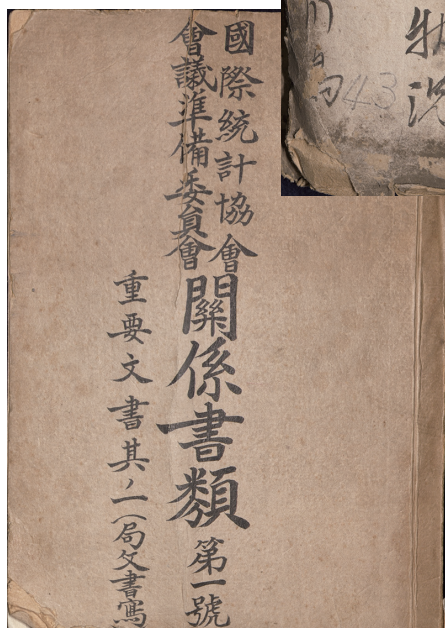 國際統計協會
會議準備委員會
關係書類 第一號
重要文書其ノ一(局文書寫
43